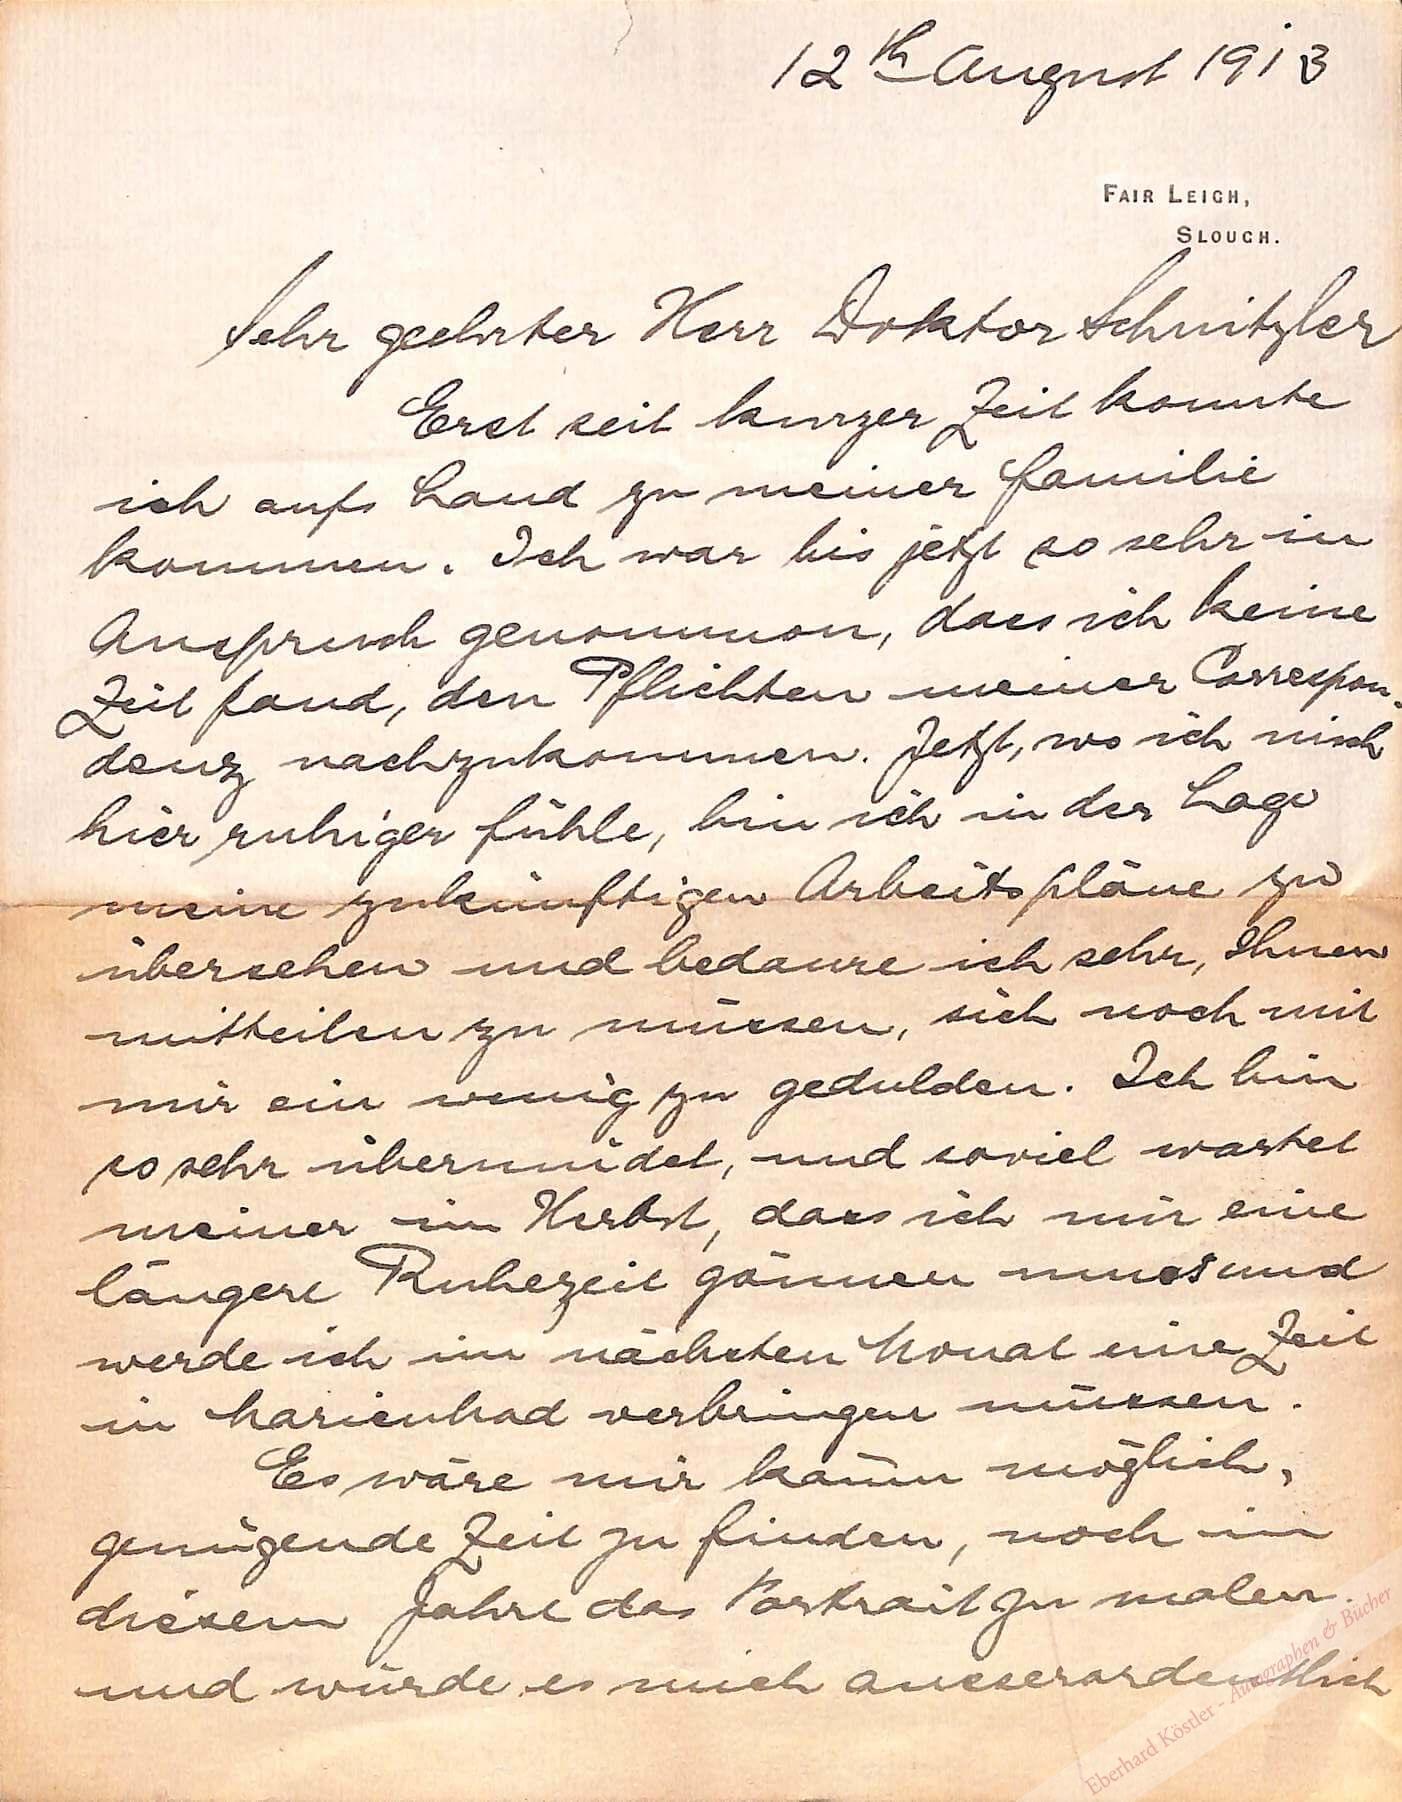 12th August 1913
FAIR LEIGH,
SLOUGH.
Sehr geehrter Herr Doktor Schnitzler
Erst seit kurzer Zeit konnte
ich aufs Land zu meiner Familie
kommen. Ich war bis jetzt so sehr in
Anspruch genommen, dass ich keine
Zeit fand, den Pflichten meiner Correspon-
denz nachzukommen. Jetzt, wo ich mich
hier ruhiger fühle, bin ich in der Lage
meine zukünftigen Arbeitspläne zu
übersehen und bedaure ich sehr, Ihnen
mitteilen zu müssen, sich noch mit
mir ein wenig zu gedulden. Ich bin
so sehr übermüdet, und soviel wartet
meiner im Herbst, dass ich mir eine
längere Ruhezeit gönnen muss und
werde ich im nächsten Monat eine Zeit
in Marienbad verbringen müssen.
Es wäre mir kaum möglich,
genügende Zeit zu finden, noch in
diesem Jahre das Portrait zu malen.
und würde es mich ausserordentlich
Eberhard Köstler - Autographen & Bücher